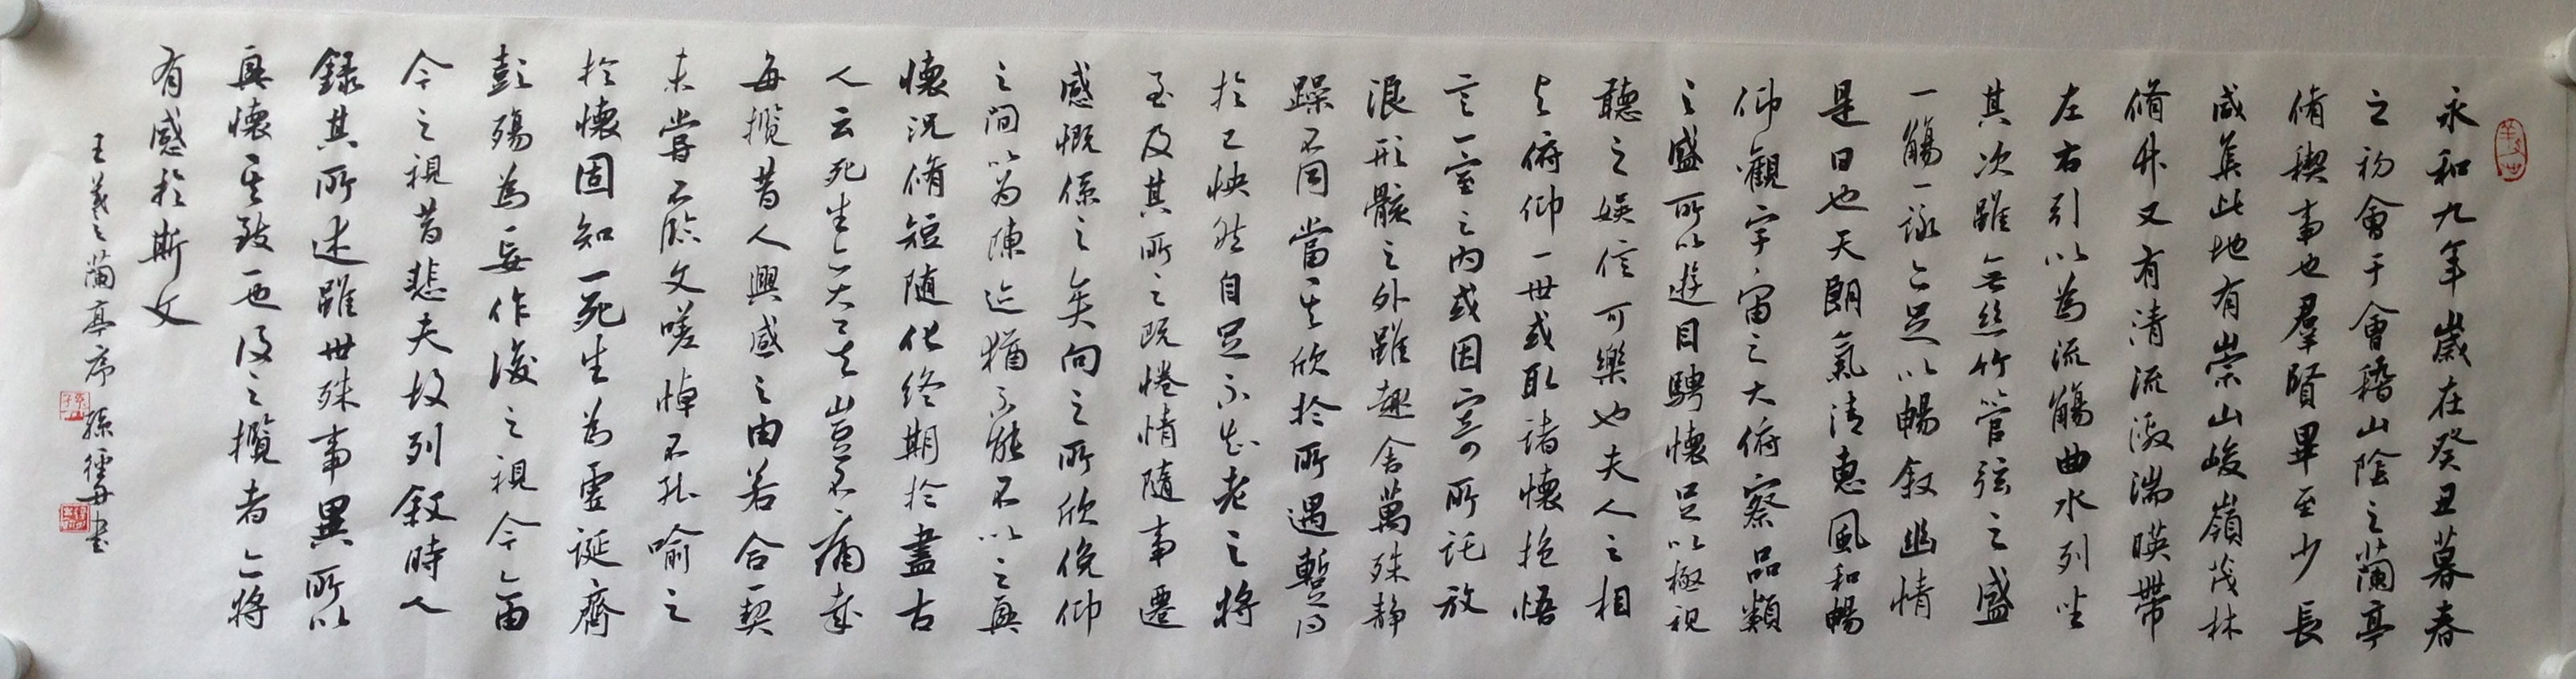 永和九年歲在癸丑暮春
之初會于會稽山陰之蘭亭
脩稧事也羣賢畢至少長
咸集此地有崇山峻嶺茂林
脩竹又有清流激湍暎帶
左右引以為流觴曲水列坐
其次雖無絲竹管弦之盛
一觴一詠亦足以暢叙幽情
是日也天朗氣清惠風和暢
仰觀宇宙之大俯察品類
之盛所以遊目騁懷足以極視
聽之娛信可樂也夫人之相
與俯仰一世或取諸懷抱悟
言一室之內或因寄所託放
浪形骸之外雖趣舍萬殊静
躁不同當其欣於所遇暫得
於己怏然自足不知老之將
至及其所之既惓情隨事遷
感慨係之矣向之所欣俛仰
之間以為陳迹猶不能不以之興
懷況脩短隨化終期於盡古
人云死生亦大矣豈不痛哉
每攬昔人興感之由若合一契
未嘗不臨文嗟悼不能喻之
於懷固知一死生為虛誕齊
彭殤為妄作後之視今亦由
今之視昔悲夫故列叙時人
錄其所述雖世殊事異所以
興懷其致一也後之攬者亦將
有感於斯文
王羲之蘭亭序 孫 書